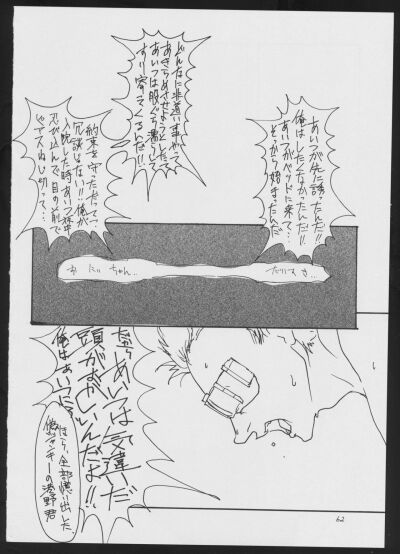 あいつが先に誘ったんだ!!
俺はしたくなかったんだ!!
あいつがベッドに来て…
そっから始まったんだ
どんなに非道い事やって
あきらめさせようとして
あいつは股ぐら濡らして
すり寄ってくるんだ!!
約束を守っただって…
冗談じゃない!!俺が
入院した時あいつ病室
忍び込んで、目の前で
だいすき…
おにいちゃん…
だから
あいつは気違いだ
頭がおかしいんだよ!!
俺はあいつに…
ほら、全部憶い出した
62